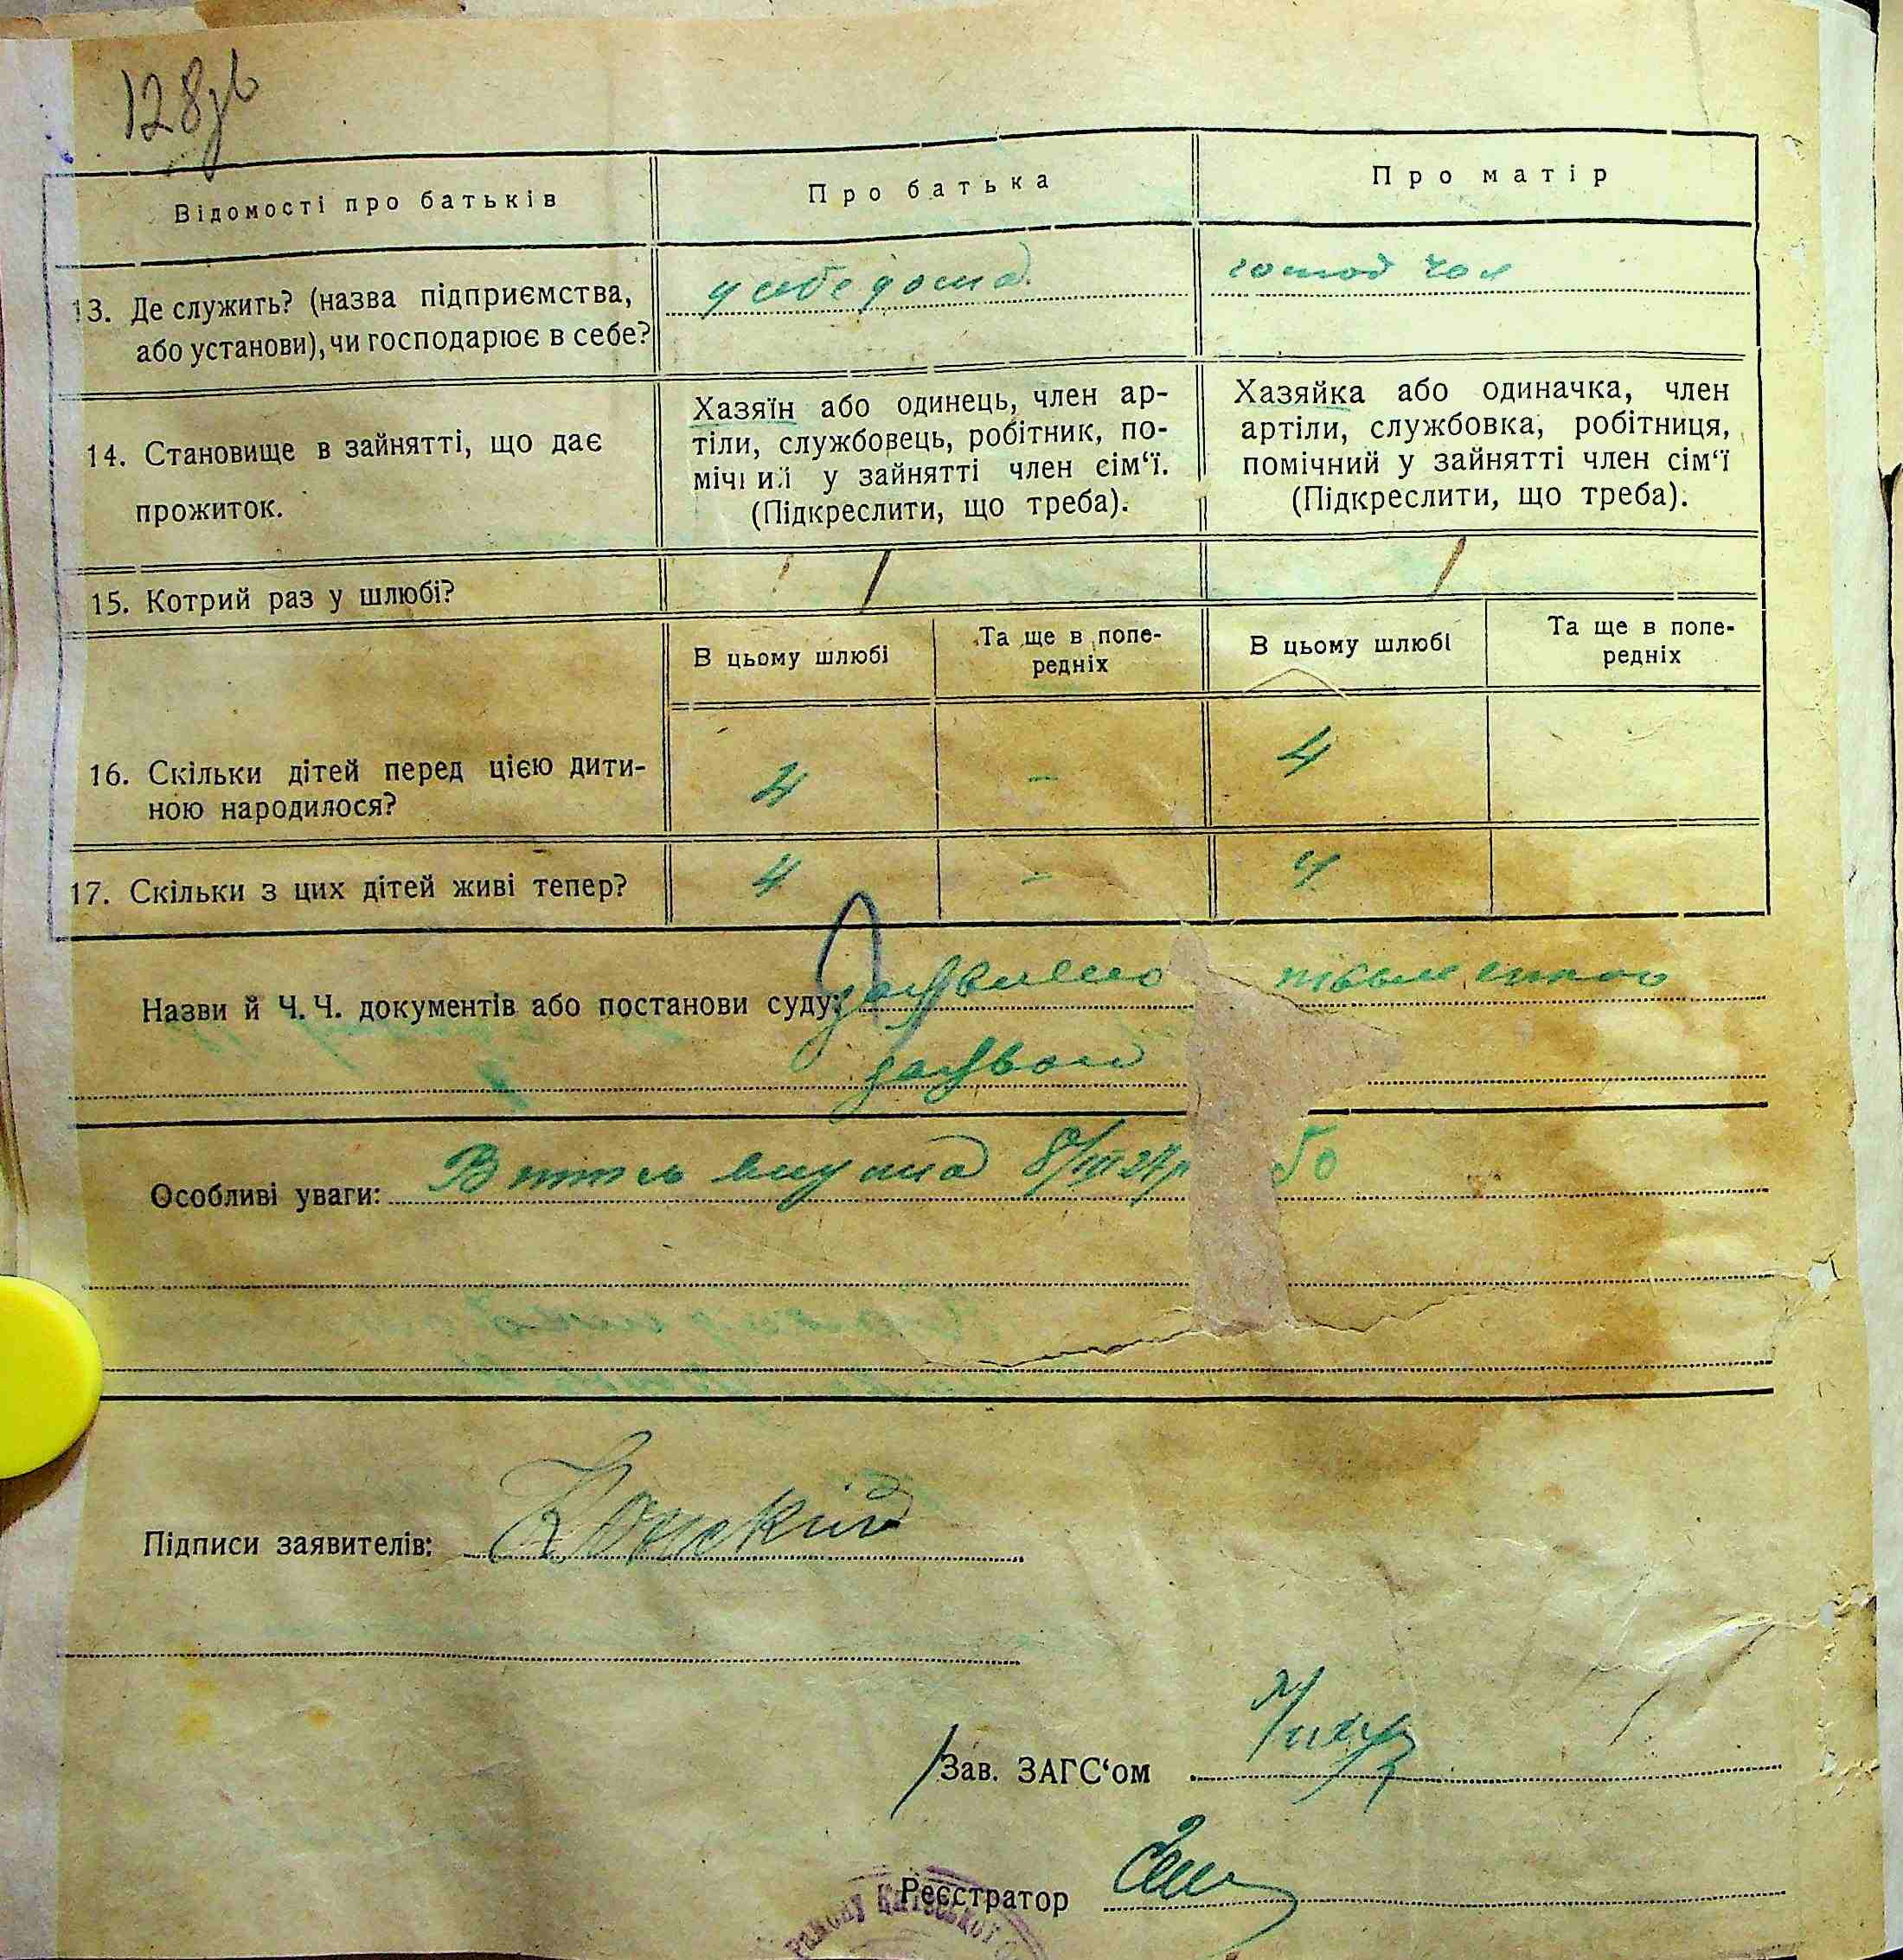 128зв
Відомості про батьків
Про батька
Про матір
13. Де служить? (назва підприємства,
або установи), чи господарює в себе?
у себе дома
14. Становище в зайнятті, що дає
прожиток.
Хазяїн або одинець, член ар-
тіли, службовець, робітник, по-
мічний у зайнятті член сім‘ї.
(Підкреслити, що треба).
Хазяйка або одиначка, член
артіли, службовка, робітниця,
помічний у зайнятті член сім‘ї
(Підкреслити, що треба).
15. Котрий раз у шлюбі?
1
1
В цьому шлюбі
Та ще в попе-
редніх
В цьому шлюбі
Та ще в попе-
редніх
16. Скільки дітей перед цією дити-
ною народилося?
4
-
4
17. Скільки з цих дітей живі тепер?
4
-
4
Назви й Ч. Ч. документів або постанови суду:
Особливі уваги: 50
Підписи заявителів:
Зав. ЗАГС‘ом
Реєстратор
району Київської